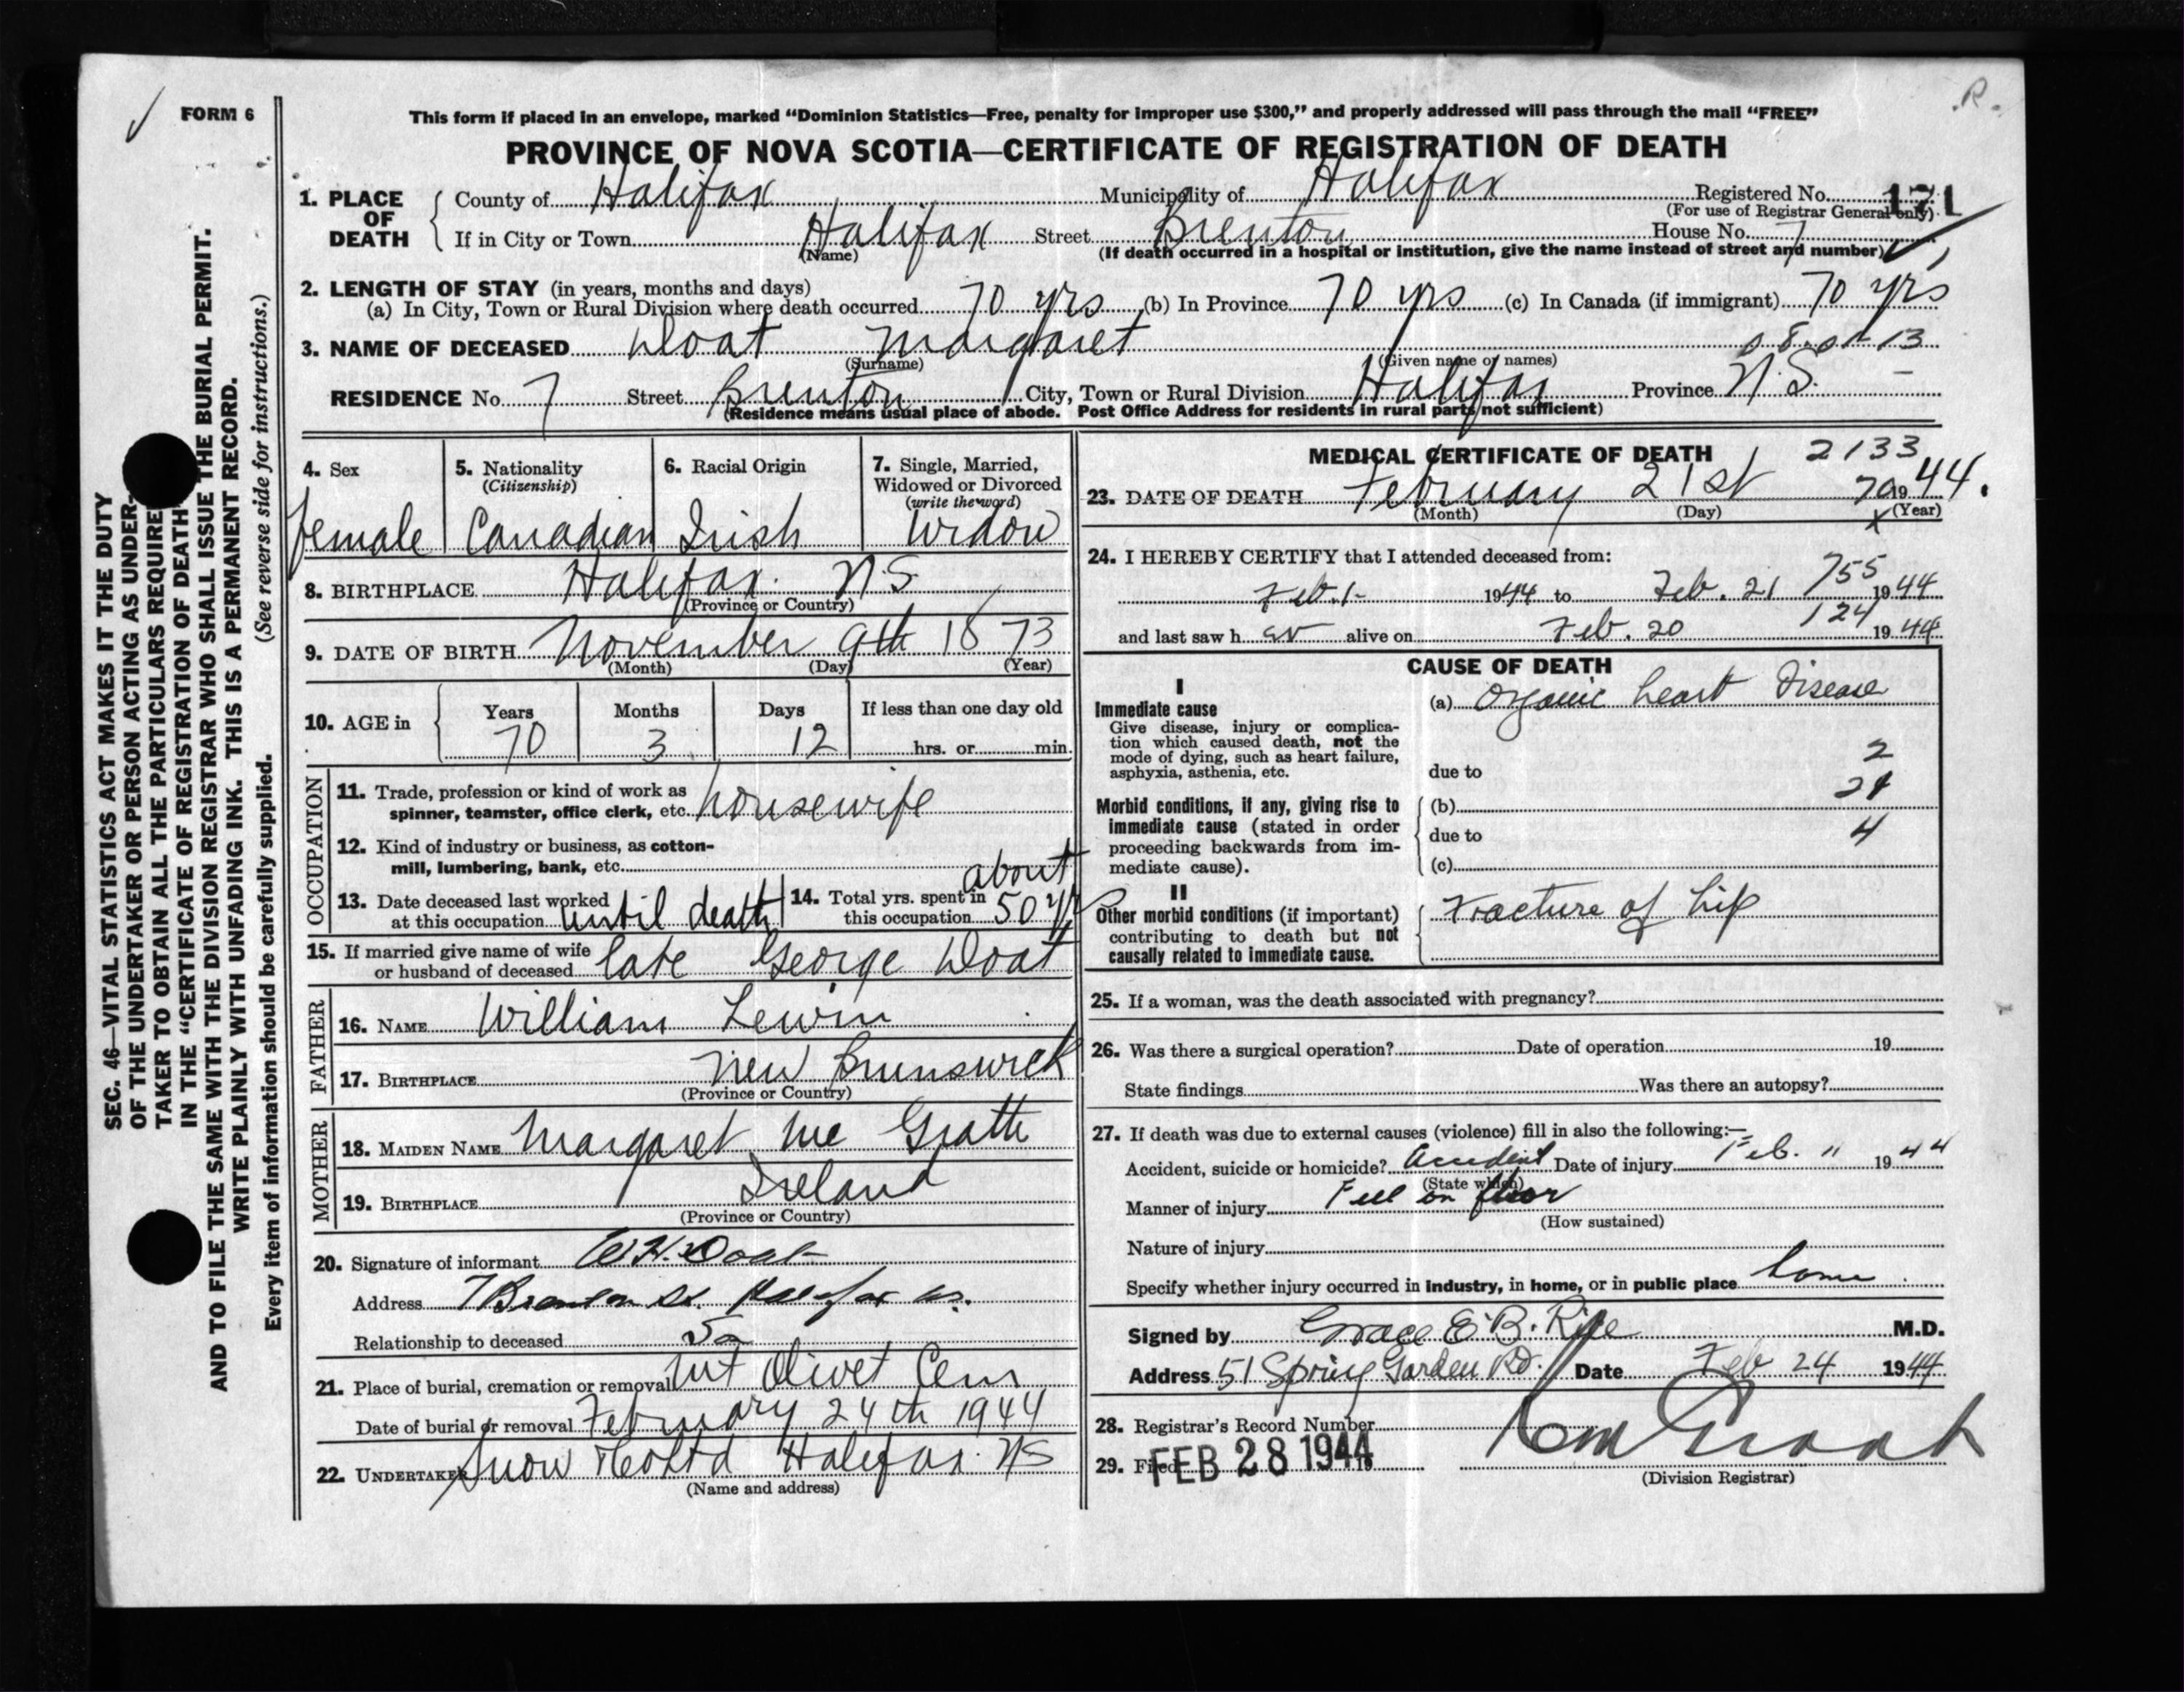 FORM 6
R.
This form if placed in an envelope, marked “Dominion Statistics—Free, penalty for improper use $300,” and properly addressed will pass through the mail “FREE”
PROVINCE OF NOVA SCOTIA—CERTIFICATE OF REGISTRATION OF DEATH
1. PLACE OF DEATH County of Halifax Municipality of Halifax Registered No. 171
(For use of Registrar General only)
If in City or Town Halifax Street Brenton House No. 7
(Name) (If death occurred in a hospital or institution, give the name instead of street and number)
2. LENGTH OF STAY (in years, months and days)
(a) In City, Town or Rural Division where death occurred 70 yrs (b) In Province 70 yrs (c) In Canada (if immigrant) 70 yrs
3. NAME OF DECEASED Doat Margaret
(Surname) (Given name or names)
RESIDENCE No. 7 Street Brenton City, Town or Rural Division Halifax Province N.S.
(Residence means usual place of abode. Post Office Address for residents in rural parts not sufficient)
4. Sex
female
5. Nationality
(Citizenship)
Canadian
6. Racial Origin
Irish
7. Single, Married,
Widowed or Divorced
(write the word)
Widow
8. BIRTHPLACE Halifax. N.S.
(Province or Country)
9. DATE OF BIRTH November 9th 1873
(Month) (Day) (Year)
10. AGE in Years Months Days If less than one day old
70 3 12 hrs. or min.
OCCUPATION
11. Trade, profession or kind of work as
spinner, teamster, office clerk, etc. housewife
12. Kind of industry or business, as cotton-
mill, lumbering, bank, etc.
13. Date deceased last worked
at this occupation until death
14. Total yrs. spent in about
this occupation 50 yrs
15. If married give name of wife
or husband of deceased late George Doat
FATHER
16. NAME William Lewin
17. BIRTHPLACE New Brunswick
(Province or Country)
MOTHER
18. MAIDEN NAME Margaret Mc Grath
19. BIRTHPLACE Ireland
(Province or Country)
20. Signature of informant W.H. Doat
Address 7 Brenton St. Halifax
Relationship to deceased
21. Place of burial, cremation or removal Mt Olivet Cem
Date of burial or removal February 24th 1944
22. UNDERTAKER Snow & Co Ltd Halifax. NS
(Name and address)
MEDICAL CERTIFICATE OF DEATH 2133
23. DATE OF DEATH February 21st 70 1944.
(Month) (Day) (Year)
24. I HEREBY CERTIFY that I attended deceased from:
Feb. 1- 1944 to Feb. 21 755 1944
and last saw h er alive on Feb. 20 124 1944
CAUSE OF DEATH
I
Immediate cause
Give disease, injury or complica-
tion which caused death, not the
mode of dying, such as heart failure,
asphyxia, asthenia, etc.
(a) Organic heart disease
2
due to
Morbid conditions, if any, giving rise to
immediate cause (stated in order
proceeding backwards from im-
mediate cause).
(b)
due to 4
(c)
II
Other morbid conditions (if important)
contributing to death but not
causally related to immediate cause.
Fracture of hip
25. If a woman, was the death associated with pregnancy?
26. Was there a surgical operation? Date of operation 19
State findings Was there an autopsy?
27. If death was due to external causes (violence) fill in also the following:—
Accident, suicide or homicide? Accident Date of injury Feb. 1944
(State which)
Manner of injury Fell on floor
(How sustained)
Nature of injury
Specify whether injury occurred in industry, in home, or in public place home
Signed by Grace E. B. Rice M.D.
Address 51 Spring Garden Rd. Date Feb 24 1944
28. Registrar's Record Number
29. Filed FEB 28 1944
(Division Registrar)
SEC. 46—VITAL STATISTICS ACT MAKES IT THE DUTY
OF THE UNDERTAKER OR PERSON ACTING AS UNDER-
TAKER TO OBTAIN ALL THE PARTICULARS REQUIRED
IN THE “CERTIFICATE OF REGISTRATION OF DEATH”
AND TO FILE THE SAME WITH THE DIVISION REGISTRAR WHO SHALL ISSUE THE BURIAL PERMIT.
WRITE PLAINLY WITH UNFADING INK. THIS IS A PERMANENT RECORD.
Every item of information should be carefully supplied. (See reverse side for instructions.)